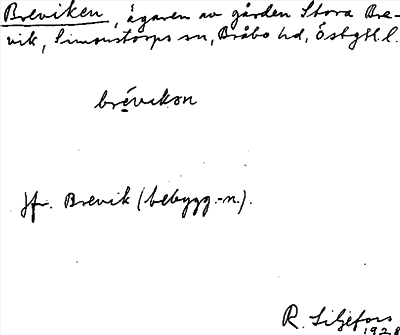 Breviken, ägaren av gården Stora Bre-
vik, Simonstorps sn, Bråbo hd, Östgtl. l.
brévikən
jfr. Brevik (bebygg.-n.).
R. Liljefors
1928